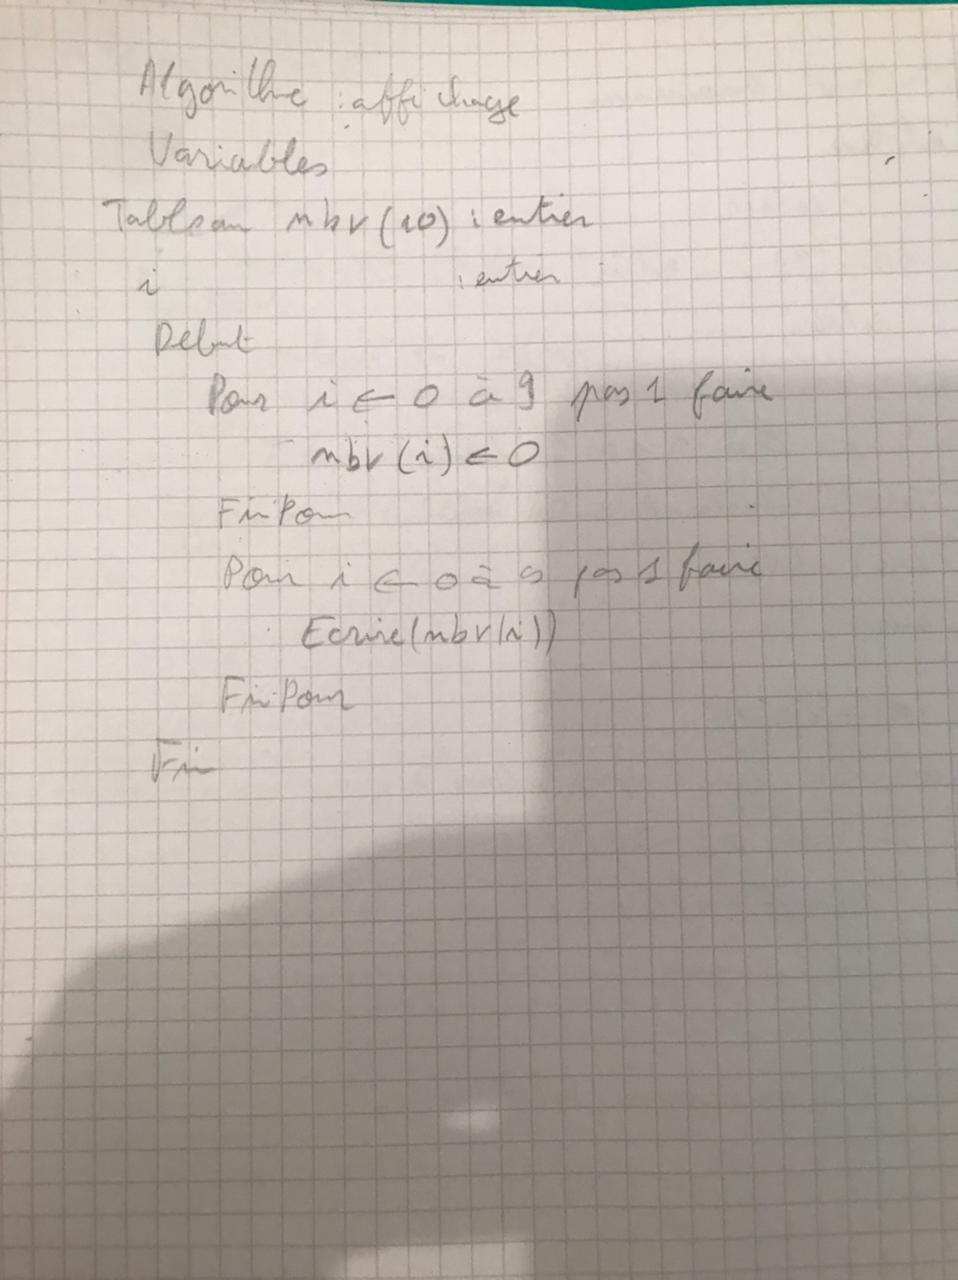 Algorithme : affichage
Variables
Tableau nbv(10) : entier
i : entier
Début
Pour i ← 0 à 9 pas 1 faire
nbv(i) ← 0
FinPour
Pour i ← 0 à 9 pas 1 faire
Ecrire(nbv(i))
FinPour
Fin